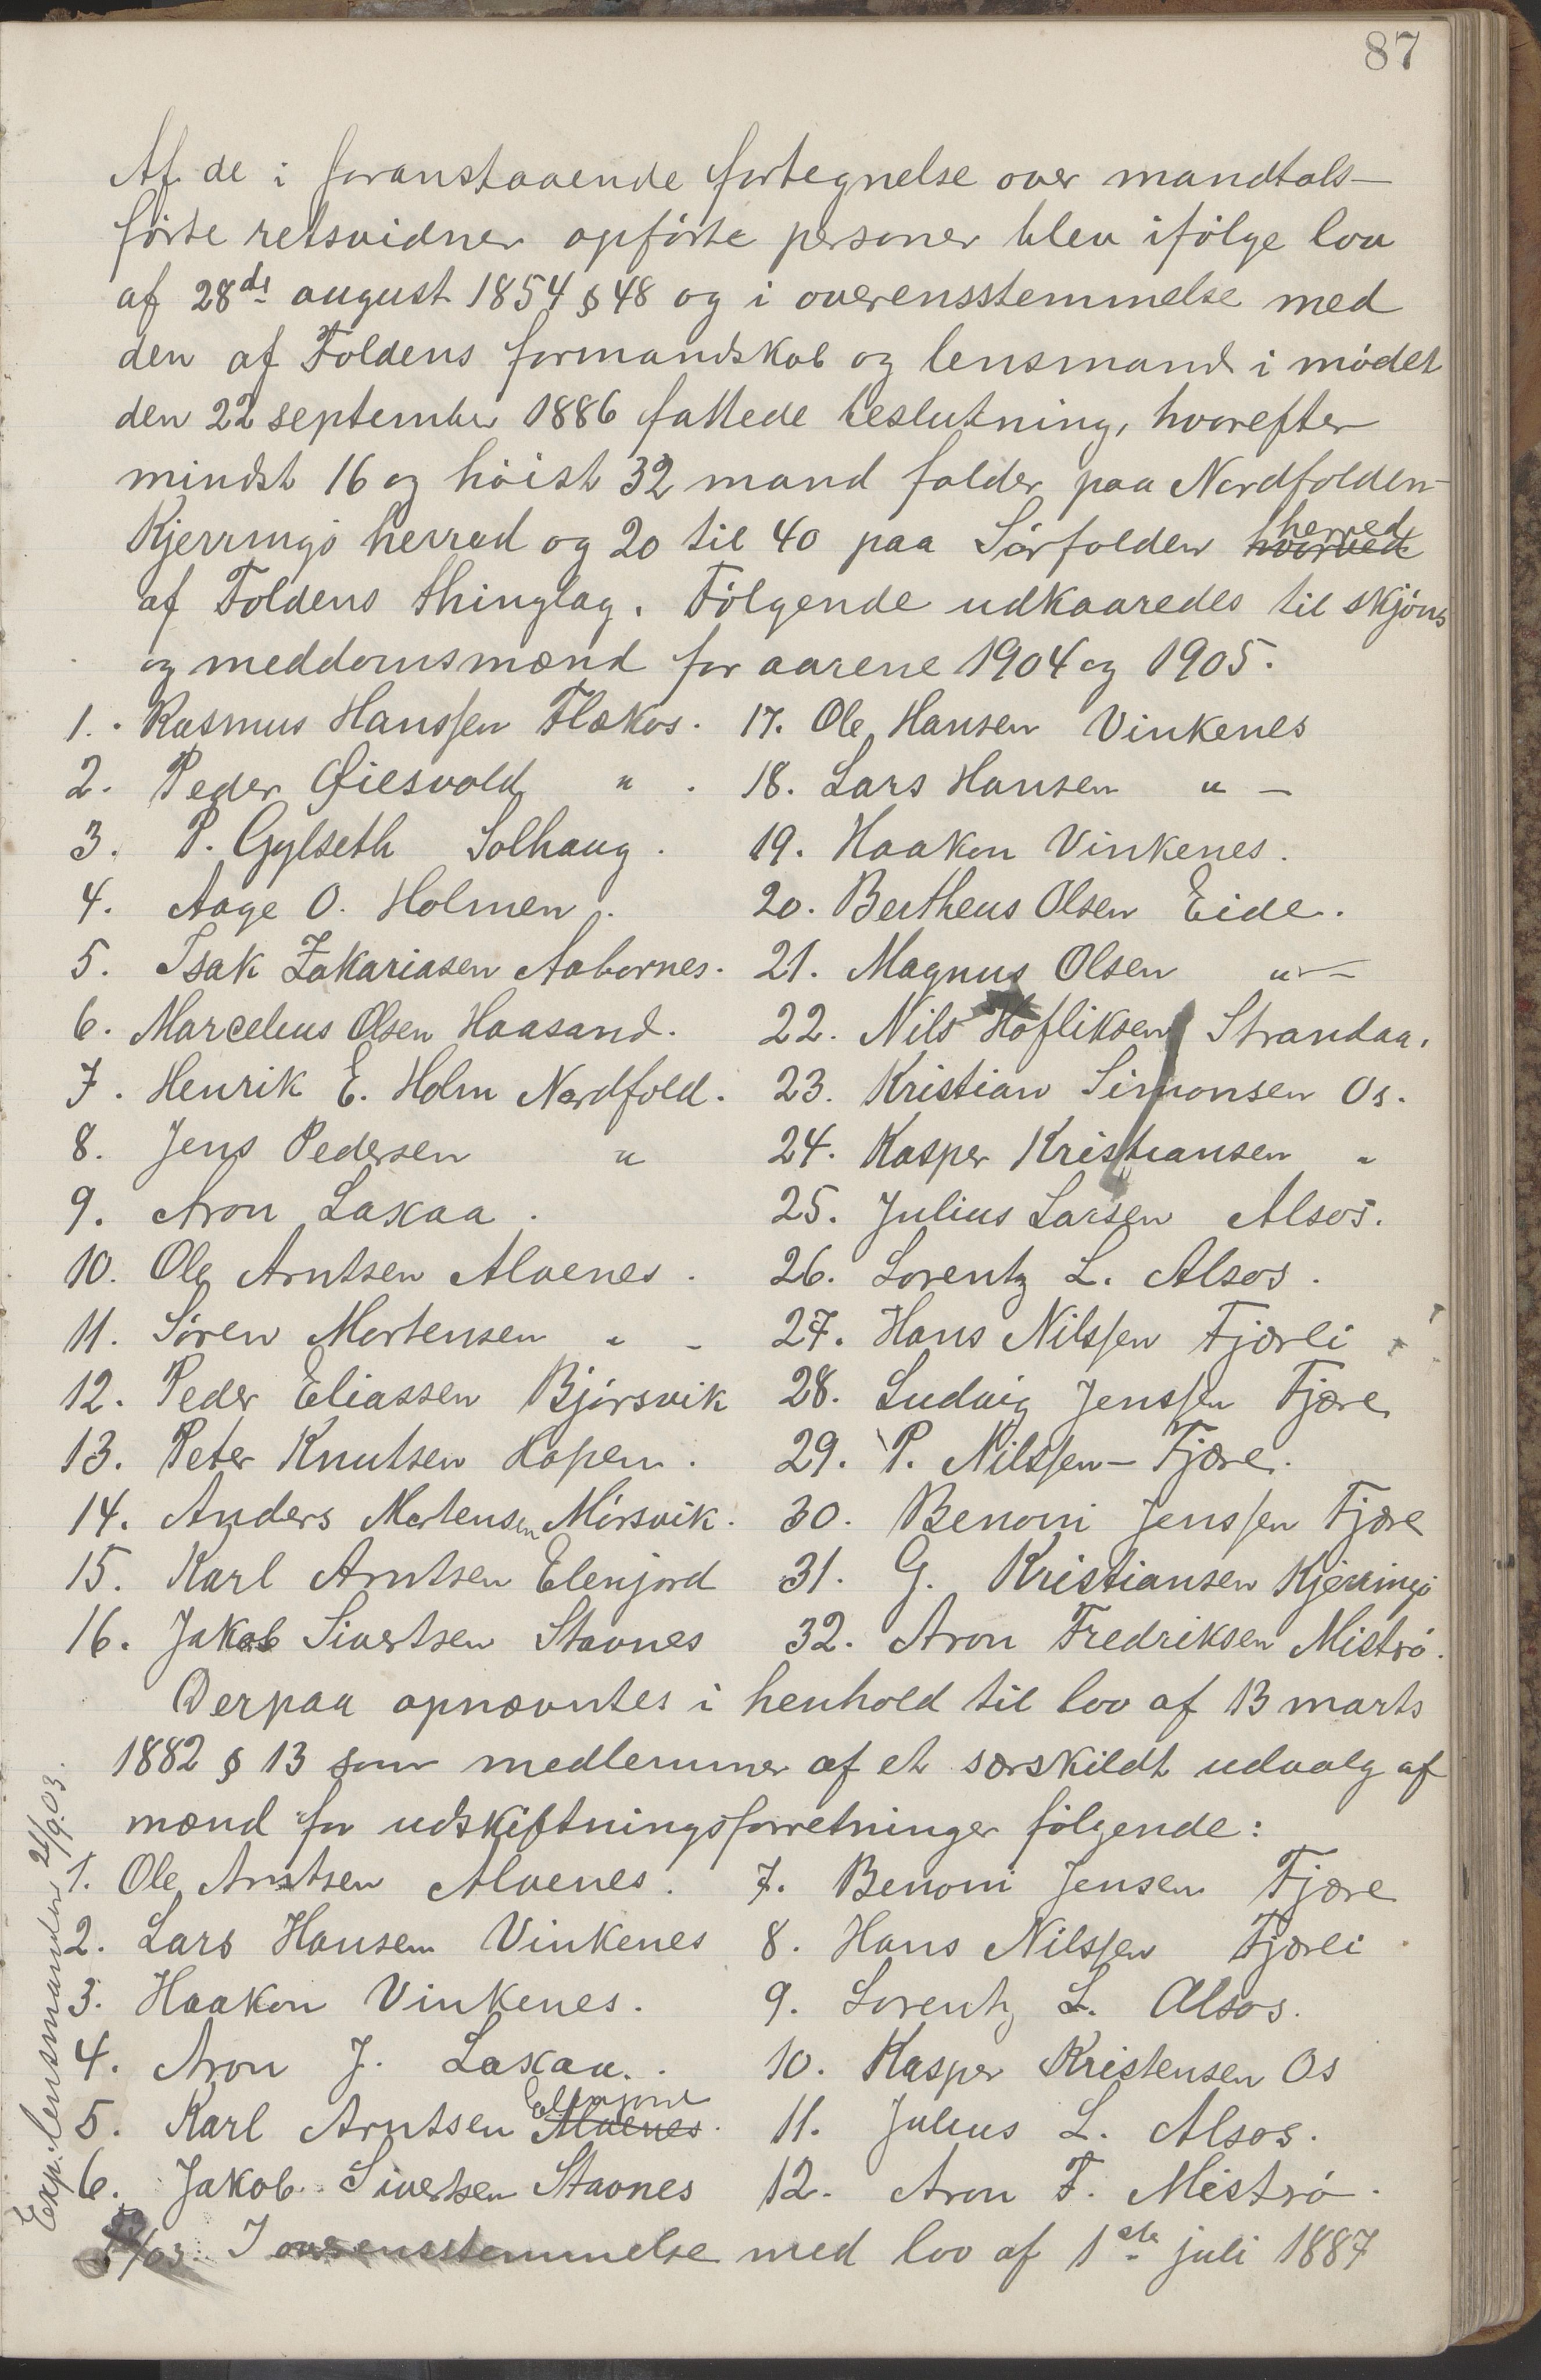 87
Af de i foranstaaende fortegnelse over mandtals-
førte retsvidner opførte personer blev ifølge lov
af 28de august 1854 § 48 og i overensstemmelse med
den af Foldens formandskab og lensmand i mødet
den 22 september 1886 fattede beslutning, hvorefter
mindst 16 og høist 32 mand falder paa Nordfolden-
Kjerringø herred og 20 til 40 paa Sørfolden herred
af Foldens thinglag. Følgende udkaaredes til skjøns
og meddomsmænd for aarene 1904 og 1905.
1. Rasmus Hanssen Flækos. 17. Ole Hansen Vinkenes
2. Peder Øiesvold " . 18. Lars Hansen " -
3. P. Gylseth Solhaug. 19. Haakon Vinkenes.
4. Aage O. Holmen. 20. Bertheus Olsen Eide.
5. Isak Zakariasen Aabornes. 21. Magnus Olsen " -
6. Marcelius Olsen Haasand. 22. Nils Hofliksen Strandaa.
7. Henrik E. Holm Nordfold. 23. Kristian Simonsen Os.
8. Jens Pedersen " 24. Kasper Kristiansen "
9. Aron Laxaa. 25. Julius Larsen Alsos.
10. Ole Arntsen Alvenes. 26. Lorentz L. Alsos.
11. Søren Mortensen " - 27. Hans Nilssen Fjærli
12. Peder Eliassen Bjørsvik 28. Ludvig Jenssen Fjære
13. Peter Knutsen Hopen. 29. P. Nilssen - Fjære.
14. Anders Mortensen Mørsvik. 30. Benoni Jenssen Fjære
15. Karl Arntsen Elenjord 31. G. Kristiansen Kjerringø
16. Jakob Sivertsen Stavnes 32. Aron Fredriksen Mistrø.
Derpaa opnævntes i henhold til lov af 13 marts
1882 § 13 som medlemmer af et særskildt udvalg af
mænd for udskiftningsforretninger følgende:
1. Ole Arntsen Alvenes. 7. Benoni Jensen Fjære
2. Lars Hansen Vinkenes 8. Hans Nilssen Fjærli
3. Haakon Vinkenes. 9. Lorentz L. Alsos.
4. Aron J. Laxaa. 10. Kasper Kristensen Os
5. Karl Arntsen Alvenes Ellenjord 11. Julius L. Alsos.
6. Jakob Sivertsen Stavnes 12. Aron F. Mistrø.
I overensstemmelse med lov af 1ste juli 1887
Exp. lensmanden 21/9.03.